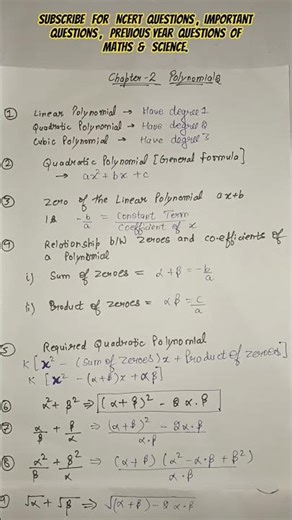 SUBSCRIBE FOR NCERT QUESTIONS, IMPORTANT
QUESTIONS, PREVIOUS YEAR QUESTIONS OF
MATHS & SCIENCE.
Chapter-2 Polynomials
① Linear Polynomial → Have degree 1
Quadratic Polynomial → Have degree 2
Cubic Polynomial → Have degree 3
② Quadratic Polynomial [General formula]
→ ax² + bx + c
③ Zero of the Linear Polynomial ax+b
is -b/a = Constant Term / Coefficient of x
④ Relationship b/w Zeroes and co-efficients of
a Polynomial
i) Sum of zeroes = α + β = -b/a
ii) Product of zeroes = αβ = c/a
⑤ Required Quadratic Polynomial
K[x² - (Sum of zeroes)x + Product of zeroes]
K[x² - (α+β)x + αβ]
⑥ α² + β² ⇒ (α+β)² - 2α.β
⑦ α/β + β/α ⇒ (α+β)² - 2α.β / α.β
⑧ α²/β + β²/α ⇒ (α+β)(α² - α.β + β²) / α.β
⑨ √α + √β ⇒ √(α+β) - 2α.β